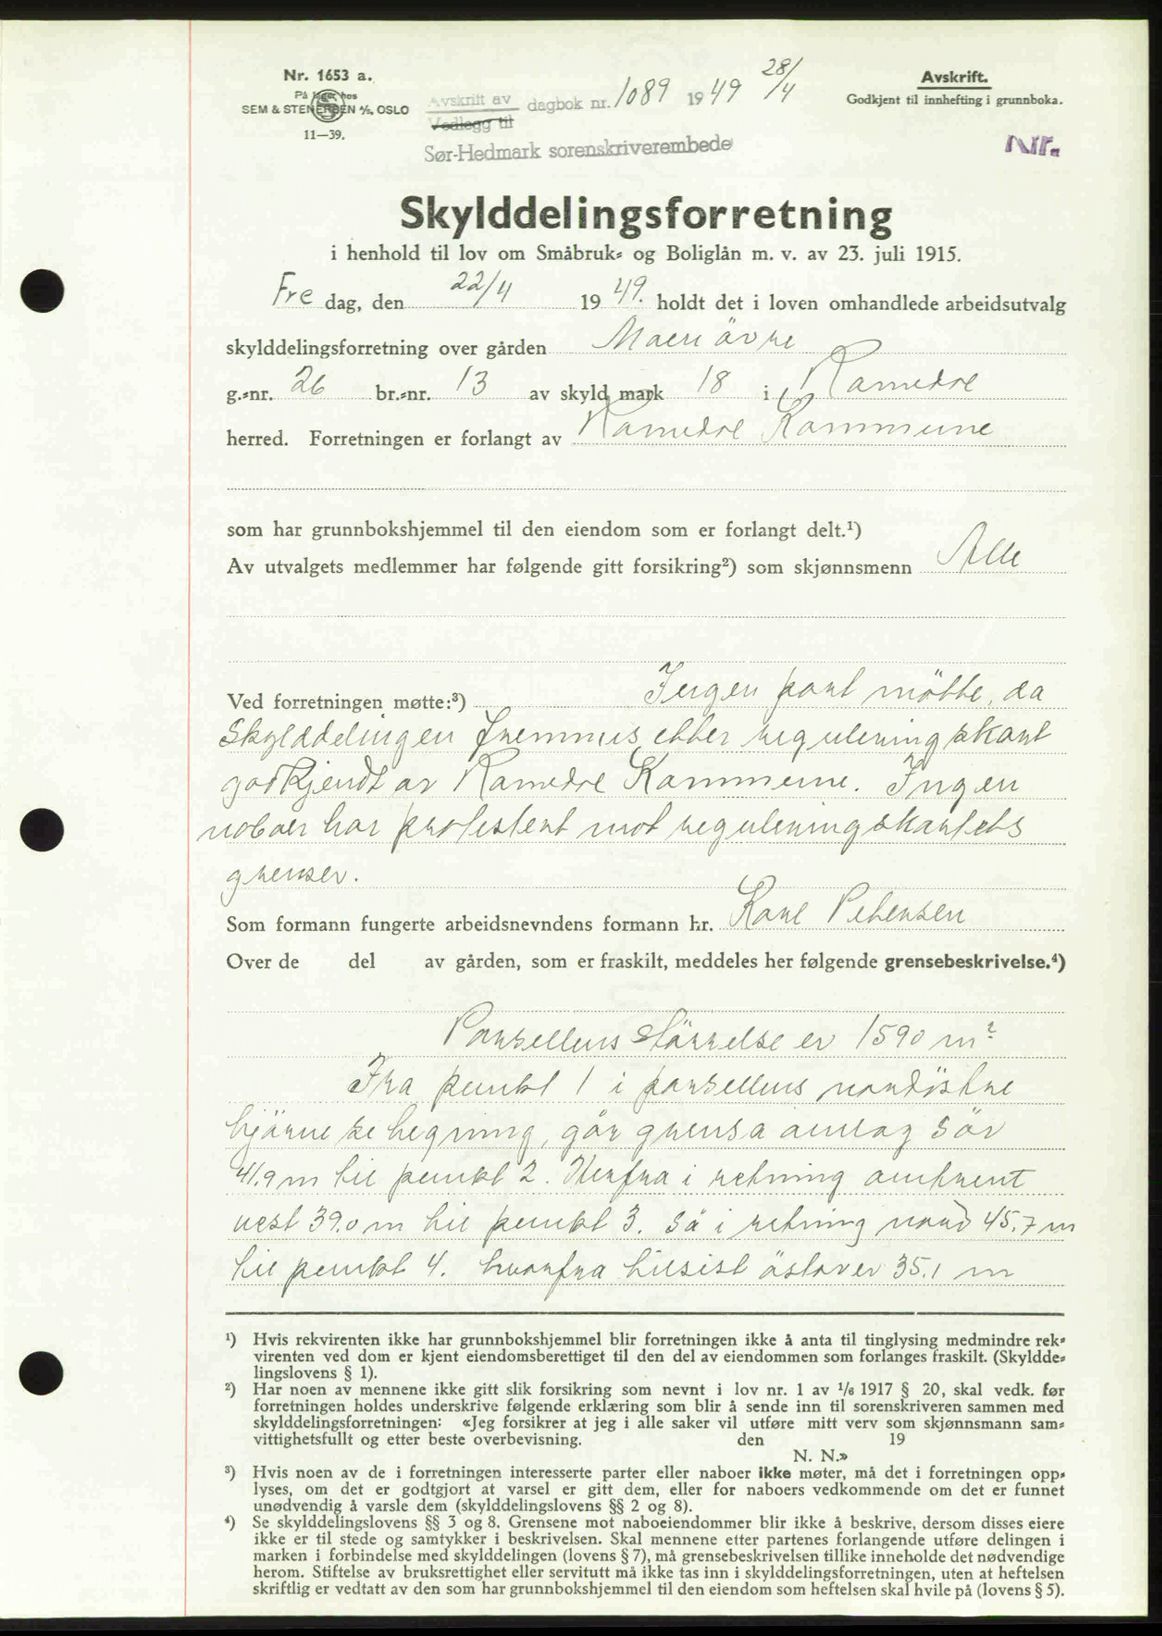 Nr. 1653 a.
På lager hos
SEM & STENERSEN A/S, OSLO
11—39.
Avskrift av
Vedlegg til
dagbok nr. 1089 1949 28/4
Sør-Hedmark sorenskriverembede
Avskrift.
Godkjent til innhefting i grunnboka.
Nr.
Skylddelingsforretning
i henhold til lov om Småbruk- og Boliglån m. v. av 23. juli 1915.
Fre dag, den 22/4 1949. holdt det i loven omhandlede arbeidsutvalg
skylddelingsforretning over gården Moen övre
g.-nr. 26 br.-nr. 13 av skyld mark 18 i Romedal
herred. Forretningen er forlangt av Romedal Kommune
som har grunnbokshjemmel til den eiendom som er forlangt delt.¹)
Av utvalgets medlemmer har følgende gitt forsikring²) som skjønnsmenn Alle
Ved forretningen møtte:³) Ingen part mötte, da
Skylddelingen fremmes etter reguleringskart
godkjendt av Romedal Kommune. Ingen
naboer har protestert mot reguleringskartets
grenser.
Som formann fungerte arbeidsnevndens formann hr. Karl Petersen
Over de del av gården, som er fraskilt, meddeles her følgende grensebeskrivelse.⁴)
Parsellens störrelse er 1590 m²
Fra punkt 1 i parsellens nordöstre
hjörne se hegning, går grensa omlag Sör
41.9 m til punkt 2. Herfra i retning omtrent
vest 39.0 m til punkt 3. Så i retning nord 45.7 m
til punkt 4. hvorfra tilsist östover 35.1 m
¹) Hvis rekvirenten ikke har grunnbokshjemmel blir forretningen ikke å anta til tinglysing medmindre rek-
virenten ved dom er kjent eiendomsberettiget til den del av eiendommen som forlanges fraskilt. (Skyldde-
lingslovens § 1).
²) Har noen av mennene ikke gitt slik forsikring som nevnt i lov nr. 1 av 1/6 1917 § 20, skal vedk. før
forretningen holdes underskrive følgende erklæring som blir å sende inn til sorenskriveren sammen med
skylddelingsforretningen: «Jeg forsikrer at jeg i alle saker vil utføre mitt verv som skjønnsmann sam-
vittighetsfullt og etter beste overbevisning. den 19
N. N.»
³) Hvis noen av de i forretningen interesserte parter eller naboer ikke møter, må det i forretningen opp-
lyses, om det er godtgjort at varsel er gitt dem, eller for naboers vedkommende om det er funnet
unødvendig å varsle dem (skylddelingslovens §§ 2 og 8).
⁴) Se skylddelingslovens §§ 3 og 8. Grensene mot naboeiendommer blir ikke å beskrive, dersom disses eiere
ikke er til stede og samtykker i beskrivelsen. Skal mennene etter partenes forlangende utføre delingen i
marken i forbindelse med skylddelingen (lovens § 7), må grensebeskrivelsen tillike inneholde det nødvendige
herom. Stiftelse av bruksrettighet eller servitutt må ikke tas inn i skylddelingsforretningen, uten at heftelsen
skriftlig er vedtatt av den som har grunnbokshjemmel til den eiendom som heftelsen skal hvile på (lovens § 5).